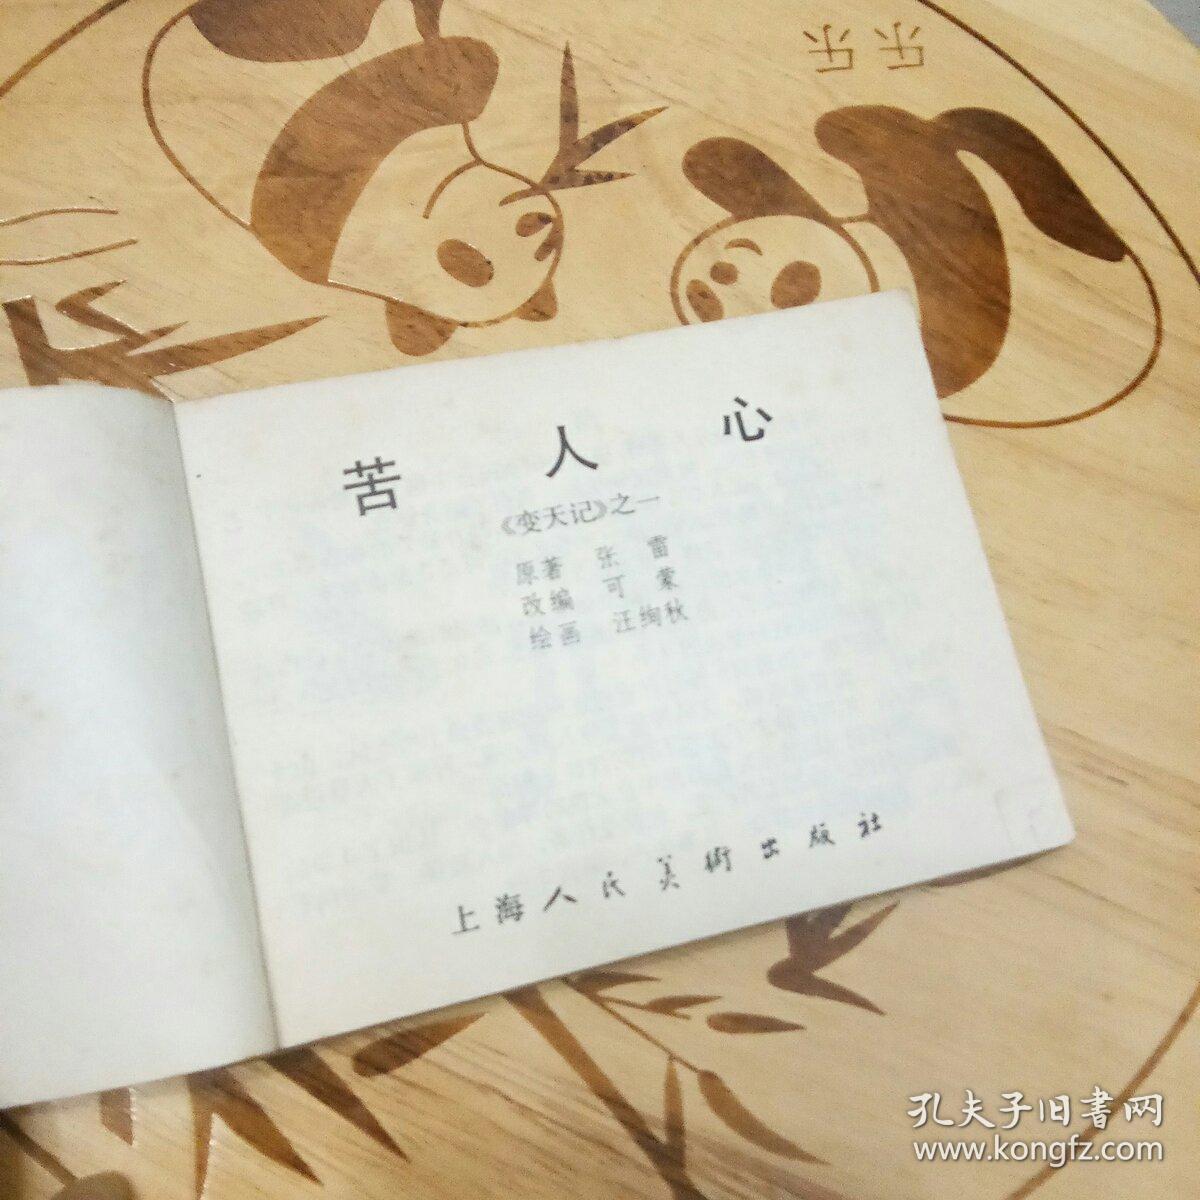 乐乐
苦人心
《变天记》之一
原著 张雷
改编 可蒙
绘画 汪绚秋
上海人民美術出版社
孔夫子旧書网
www.kongfz.com